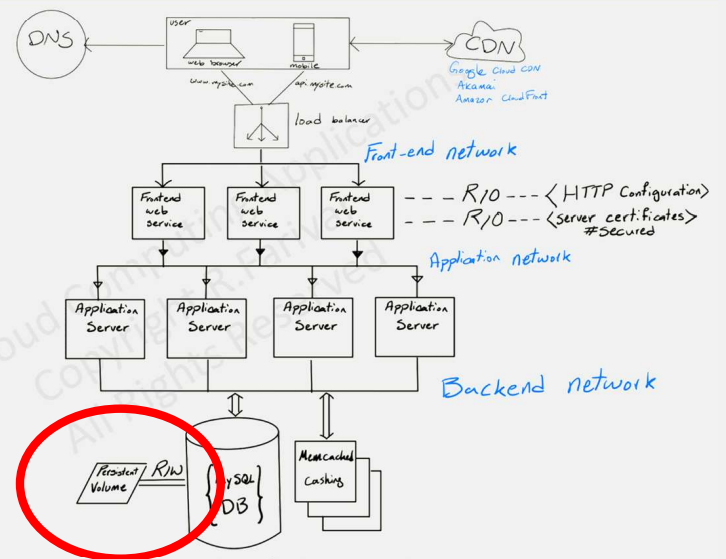 DNS
user
web browser
mobile
CDN
Google Cloud CDN
Akamai
Amazon CloudFront
www.mysite.com
api.mysite.com
load balancer
Front-end network
Frontend
web
service
Frontend
web
service
Frontend
web
service
R/O
<HTTP Configuration>
R/O
<server certificates>
#Secured
Application network
Application
Server
Application
Server
Application
Server
Application
Server
Backend network
Persistent
Volume
R/W
{MySQL}
DB
Memcached
Cashing
Cloud Computing Applications
Copyright R.Farivar
All Rights Reserved